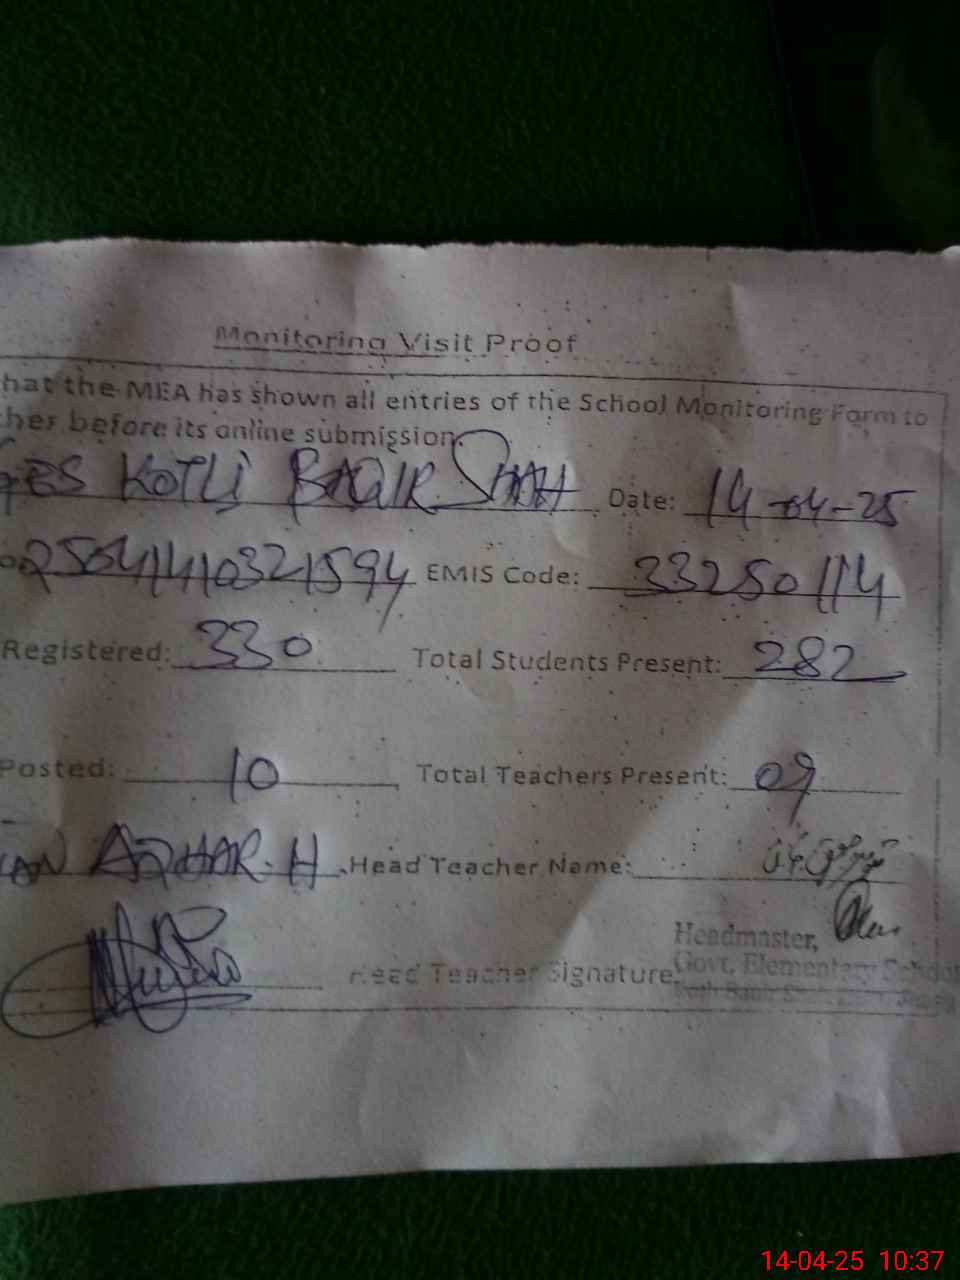 Monitoring Visit Proof
hat the MEA has shown all entries of the School Monitoring Form to
her before its online submission.
GES KOTLI BAQIR SHAH Date: 14-04-25
25041410321594 EMIS Code: 33250114
Registered: 330 Total Students Present: 282
Posted: 10 Total Teachers Present: 09
AN AZHAR.H Head Teacher Name:
Headmaster,
Head Teacher Signature Govt. Elementary School
14-04-25 10:37